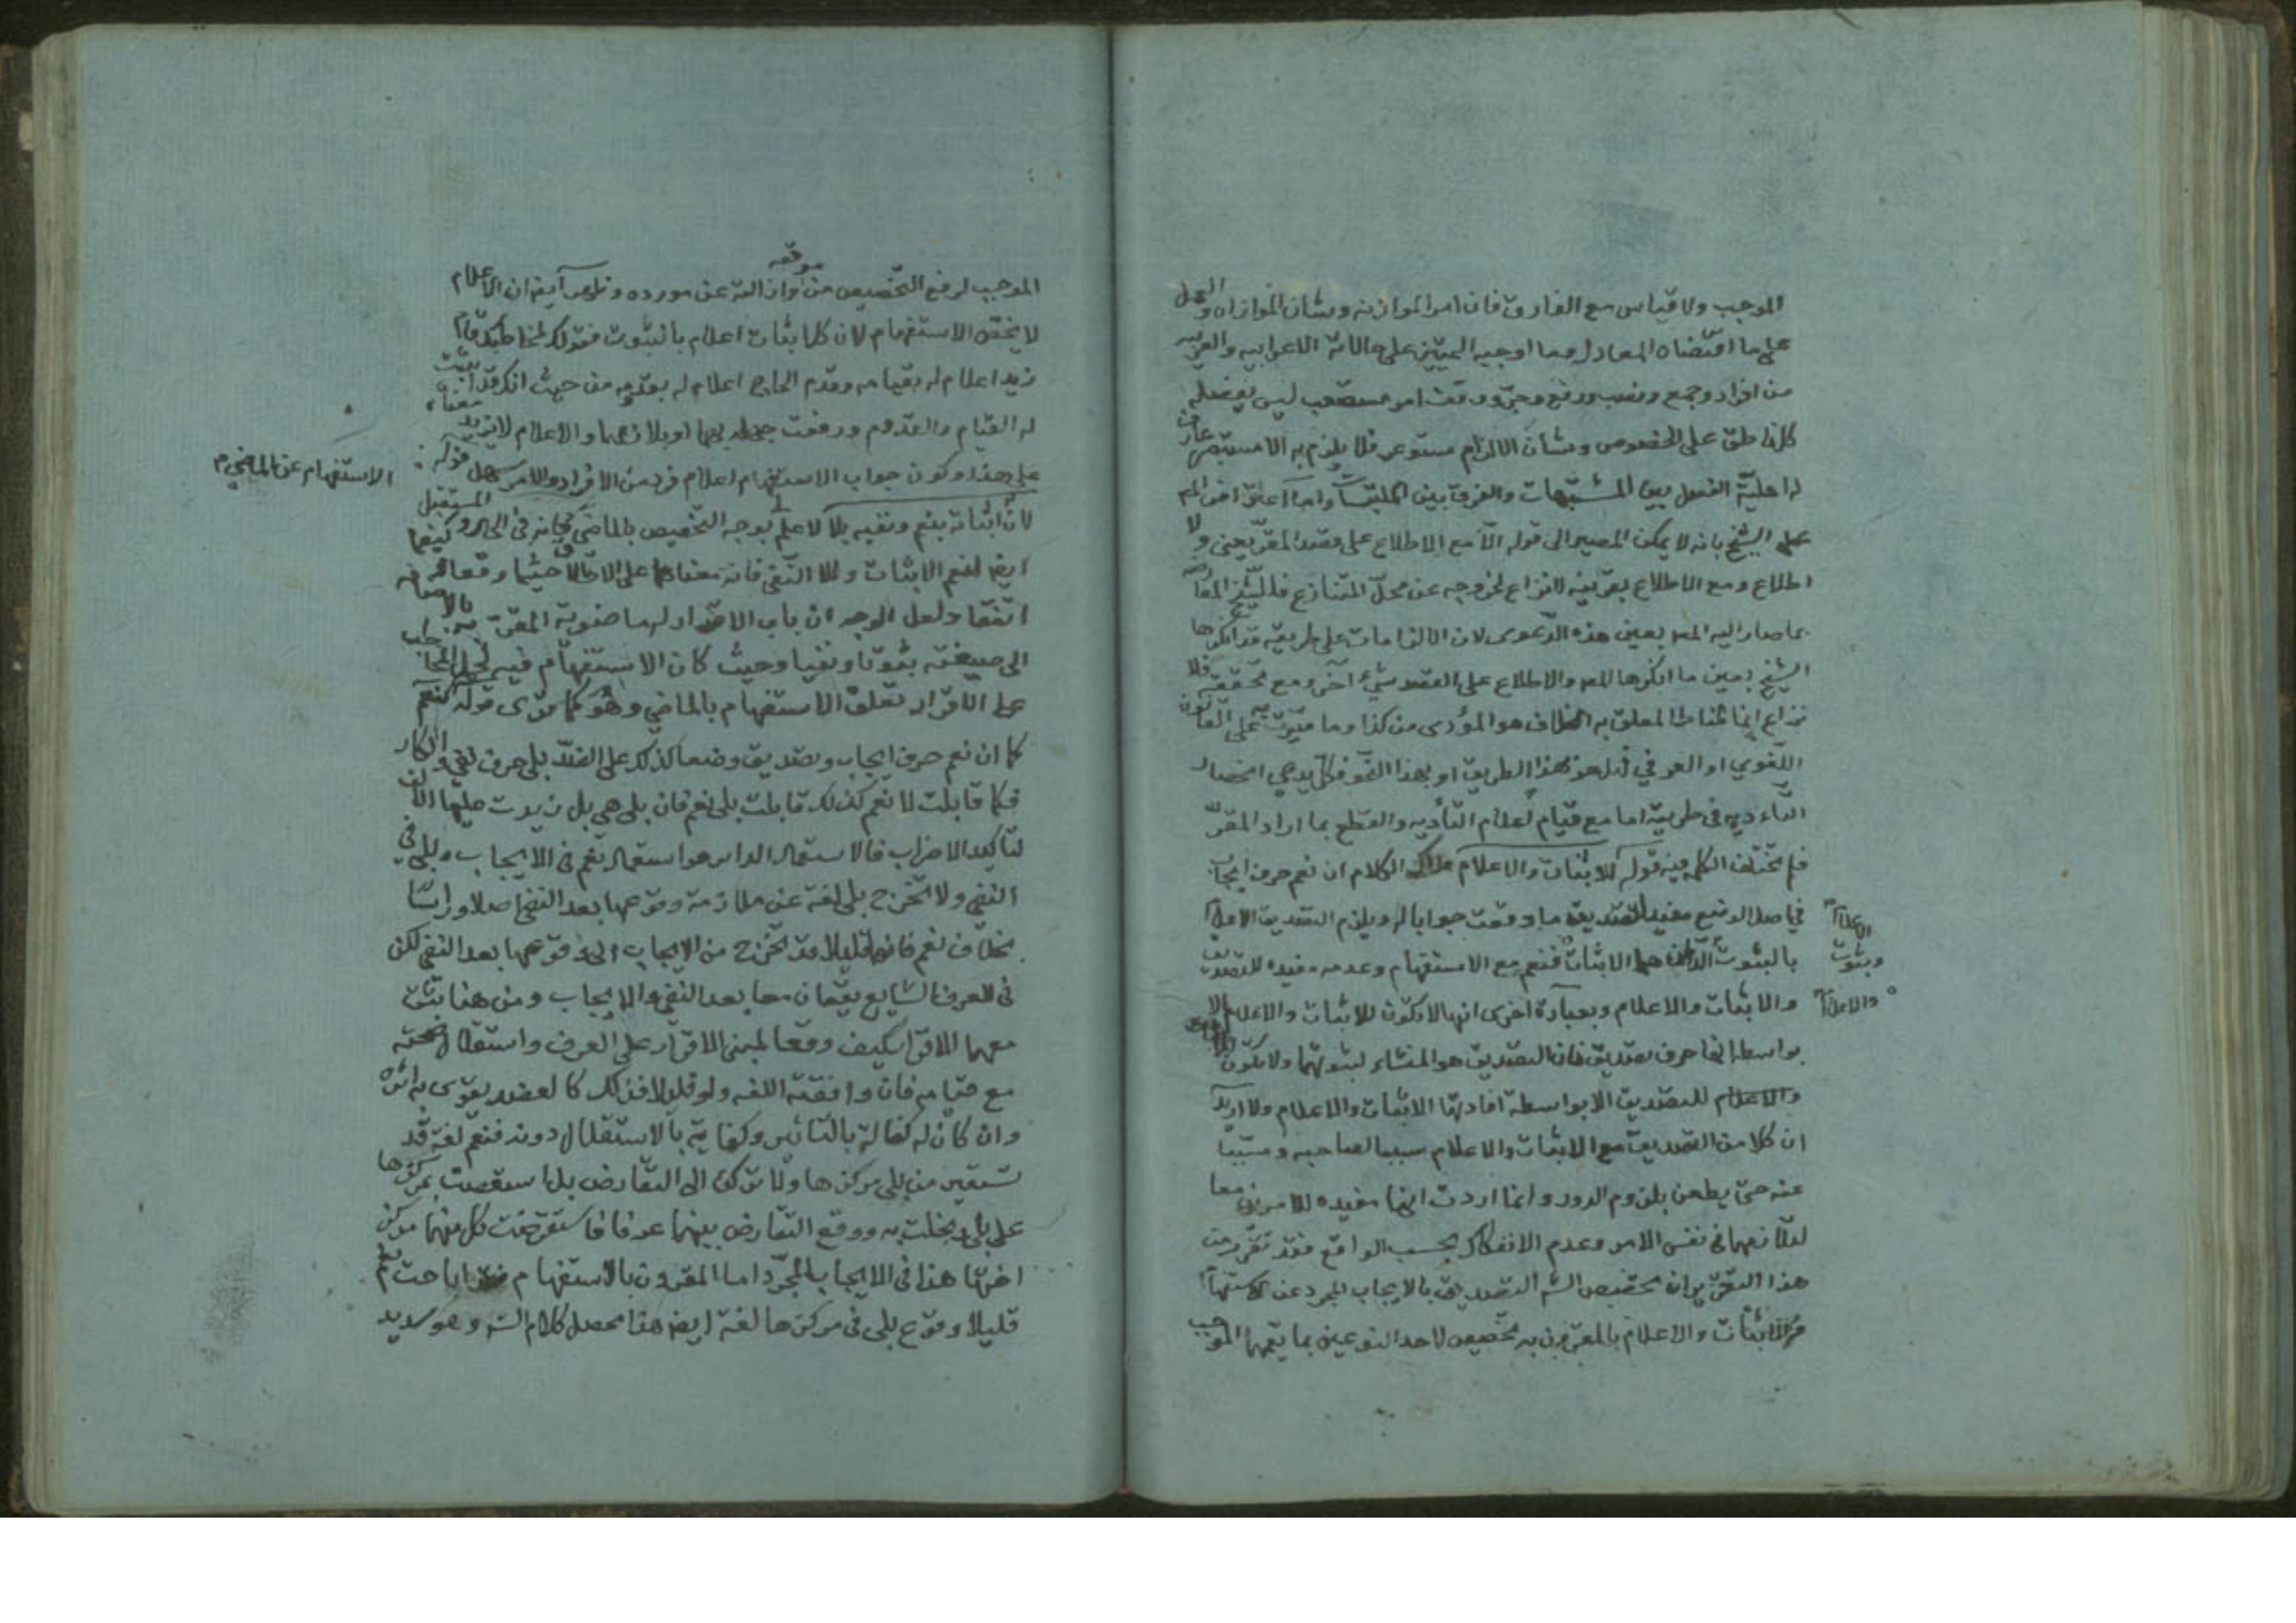 الموجب ولا قياس مع الفارق فان امر الموازنه وشان الموازاه والعمل
على ما اقتضاه المعادل وما اوجبه المميز على حالاته الاعرابيه والعربيه
من افراد وجمع ونصب ورفع وجر ووقف امر مستصعب ليس يعضله
كل ناطق على الخصوص وشان الالزام مستوعر فلا يلزم به الا مستبصر عارف
له اهلية الفصل بين المشتبهات والفرق بين الملتبسات واما
على الشيخ بانه لا يمكن المصير الى قوله الا مع الاطلاع على قصد المقر يعنى ولا
اطلاع ومع الاطلاع بقرينه لا نزاع لخروجه عن محل المتنازع فللشيخ
بما صار اليه المصه بعين هذه الدعوى لان الالزامات على طريقته قد انكرها
الشيخ بعين ما انكرها المصه والاطلاع على القصد شيء آخر ومع تحققه فلا
نزاع انما المناط المعلق به الخلاف هو المؤدى من كذا وما ميزت به على القانون
اللغوي او العرفي هل هو بهذا الطريق او بهذا النحو فكل يدعي انحصار
التاءديه في طريقته اما مع قيام اعلام التأديه والقطع بما اراد المقر
فلم تختلف الكلمه فيه قوله للاثبات والاعلام الكلام ان نعم حرف ايجاب
في اصل الوضع مفيد لتصديق ما وقعت جوابا له ويلزم التصديق الاعلام
بالثبوت هما الاثبات فنعم مع الاستفهام وعدمه مفيده للتصديق
وثبوت
والاثبات والاعلام وبعبارة اخرى انها لا تكون للاثبات والاعلام الا
والاعلام
بواسطه انها حرف تصديق فان التصديق هو المنشاء لثبوتهما ولا تكون
والاعلام للتصديق الا بواسطة افادتها الاثبات والاعلام ولا اريد
ان كلا من التصديق مع الاثبات والاعلام سببا لصاحبه ومسببا
عنه حتى يطعن بلزوم الدور وانما اردت انها مفيده للامرين معا
لتلازمهما في نفس الامر وعدم الانفكاك بحسب الواقع فقد تقرر من
هذا التقرير ان تخصيص الشه التصديق بالايجاب المجرد عن الاستفهام
والاثبات والاعلام بالمقرون به تخصيص لاحد النوعين بما يعمهما الموجب
موقعه
الموجب لرفع التخصيص من وازالته عن مورده وظهر آيضا ان الاعلام
لا يخص الاستفهام لان كل اثبات اعلام بالثبوت فقولك لمخاطبك قام
زيد اعلام له بقيامه وقدم الحاج اعلام له بقدومه من حيث انك قد اثبت
له القيام والقدوم ورفعت جهله بهما او بلازمهما والاعلام لا يزيد معناه
على هذا وكون جواب الاستفهام اعلام فرد من الافراد والامر سهل قوله
الاستفهام عن الماضي
لان اثباته بنعم ونفيه بلا لا علم بوجه التخصيص بالماضي فانه في الحال والمستقبل
ايضا لنعم الاثبات وللا النفي فانه معناهما على الاطلاق حيثما وقعا وكيفما
اتفقا ولعل الوجه ان باب الاقرار لما ضوية المقر به
الى صيغته ثبوتا ونفيا وحيث كان الاستفهام فيه
على الاقرار تعلق الاستفهام بالماضي وهو كما ترى قوله كنعم
كما ان نعم حرف ايجاب وتصديق وضعا كذلك على الضد بلى حرف نفي وانكار
فكما قابلت لا نعم كذلك قابلت بلى نعم فان بلى هي بل زيدت عليها الالف
لتاكيد الاضراب فالاستعمال الداير هو استعمال نعم في الايجاب وبلى في
النفي ولا تخرج بلى لغة عن ملازمة وقوعها بعد النفي اصلا وراسا
بخلاف نعم فانها قليلا قد تخرج من الايجاب الى وقوعها بعد النفي لكن
في العرف الشايع يقعان معا بعد النفي والايجاب ومن هنا يثبت
معهما الاقرار كيف وقعا لمبنى الاقرار على العرف واستقلال صحته
مع قيامه فان وافقته اللغه ولو قليلا فذلك كالعضد يقوى به اثره
وان كان له كفالة بالتاثير وكفاية بالاستقلال دونه فنعم لغة قد
تستعير من بلى مركزها ولا تركن الى التقارض بل استعصت بمركزها
على بلى وبخلت به ووقع التقارض بينهما عرفا فاستقرضت كل منهما مركز
اختها هذا في الايجاب المجرد اما المقرون بالاستفهام اباحت نعم
قليلا وقوع بلى في مركزها لغة ايضا هذا محصل كلام الشه وهو سديد